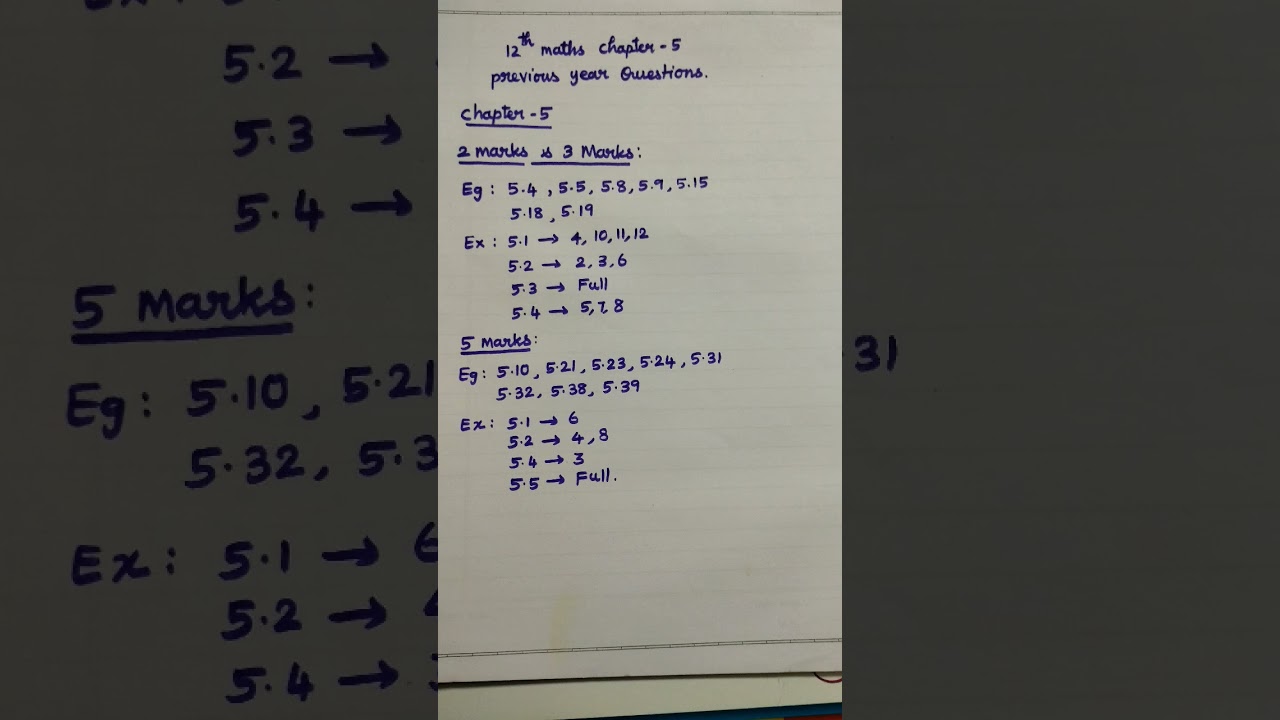 12th maths chapter - 5
previous year Questions.
Chapter - 5
2 marks & 3 Marks:
Eg : 5.4 , 5.5, 5.8, 5.9, 5.15
5.18, 5.19
Ex : 5.1 → 4, 10, 11, 12
5.2 → 2, 3, 6
5.3 → Full
5.4 → 5, 7, 8
5 Marks:
Eg: 5.10, 5.21, 5.23, 5.24, 5.31
5.32, 5.38, 5.39
Ex: 5.1 → 6
5.2 → 4, 8
5.4 → 3
5.5 → Full.